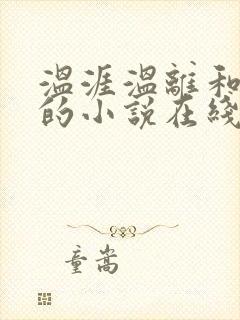 温涯温離和
的小说在线
童嵩